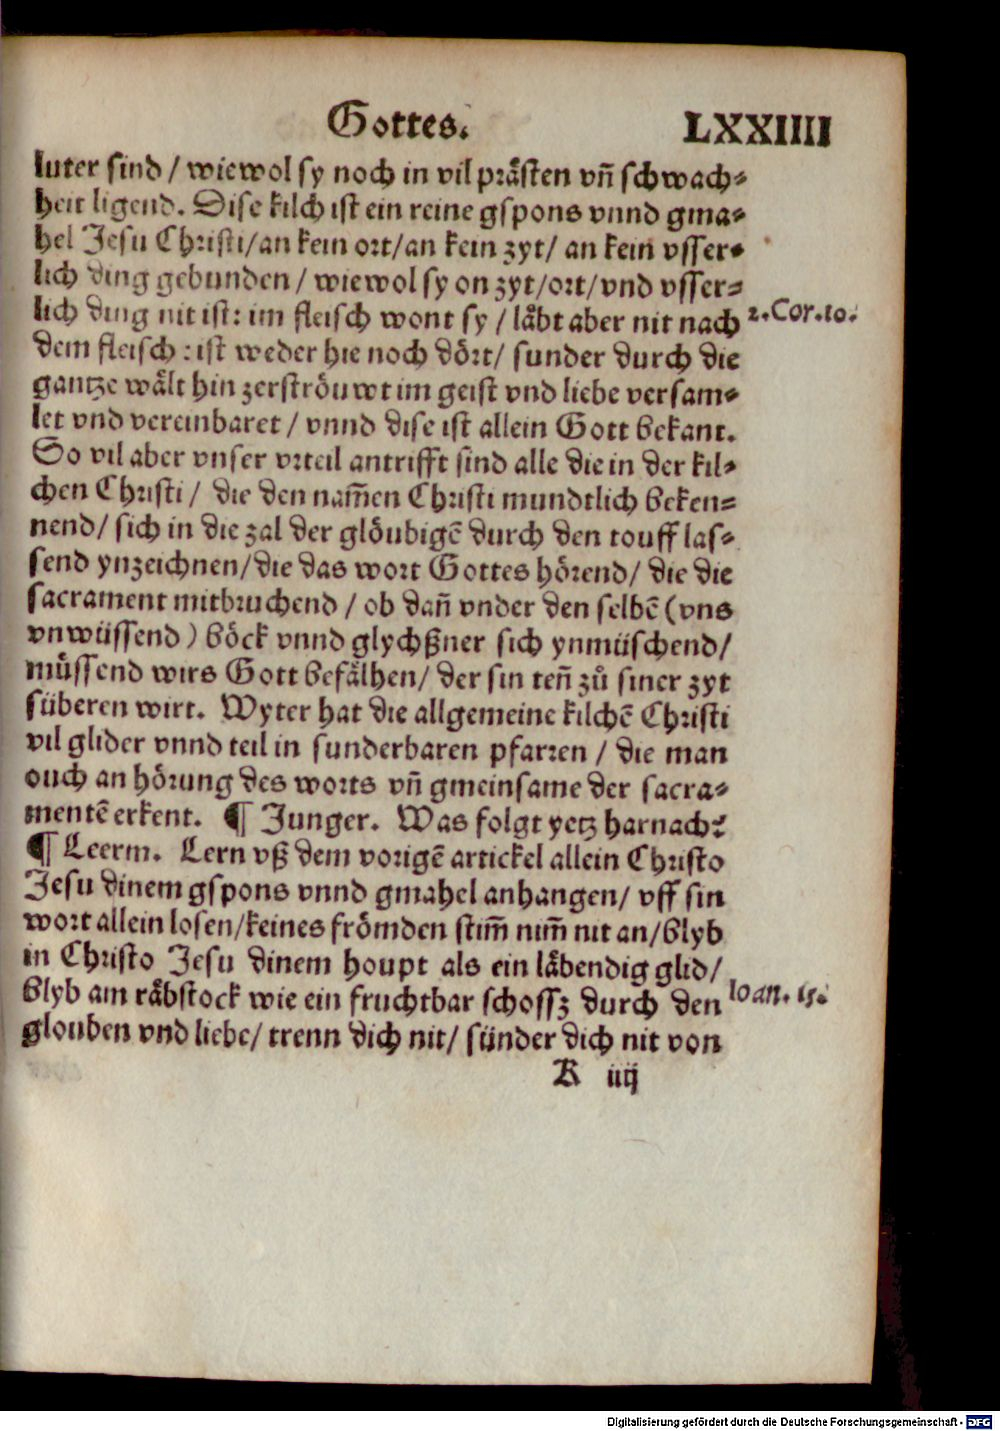 Gottes. LXXIIII
luter sind / wiewol sy noch in vil prästen vñ schwach-
heit ligend. Dise kilch ist ein reine gspons vnnd gma-
hel Jesu Christi/an kein ort/an kein zyt/ an kein vsser-
lich ding gebunden / wiewol sy on zyt/ort/vnd vsser-
lich ding nit ist: im fleisch wont sy / läbt aber nit nach 2.Cor.10.
dem fleisch : ist weder hie noch dört/ sunder durch die
gantze wält hin zerströuwt im geist vnd liebe versam-
let vnd vereinbaret / vnnd dise ist allein Gott bekant.
So vil aber vnser vrteil antrifft sind alle die in der kil-
chen Christi / die den nam̃en Christi mundtlich beken-
nend/ sich in die zal der glöubigẽ durch den touff las-
send ynzeichnen/die das wort Gottes hörend/ die die
sacrament mitbruchend / ob dañ vnder den selbẽ (vns
vnwüssend) böck vnnd glychßner sich ynmüschend/
müssend wirs Gott befälhen/ der sin teñ zů siner zyt
süberen wirt. Wyter hat die allgemeine kilchẽ Christi
vil glider vnnd teil in sunderbaren pfarren / die man
ouch an hörung des worts vñ gmeinsame der sacra-
mentẽ erkent. ¶ Junger. Was folgt yetz harnach?
¶ Leerm. Lern vß dem vorigẽ artickel allein Christo
Jesu dinem gspons vnnd gmahel anhangen/ vff sin
wort allein losen/keines frömden stim̃ nim̃ nit an/blyb
in Christo Jesu dinem houpt als ein läbendig glid/
blyb am räbstock wie ein fruchtbar schossz durch den Ioan. 15.
glouben vnd liebe/ trenn dich nit/ sünder dich nit von
K iiij
Digitalisierung gefördert durch die Deutsche Forschungsgemeinschaft - DFG